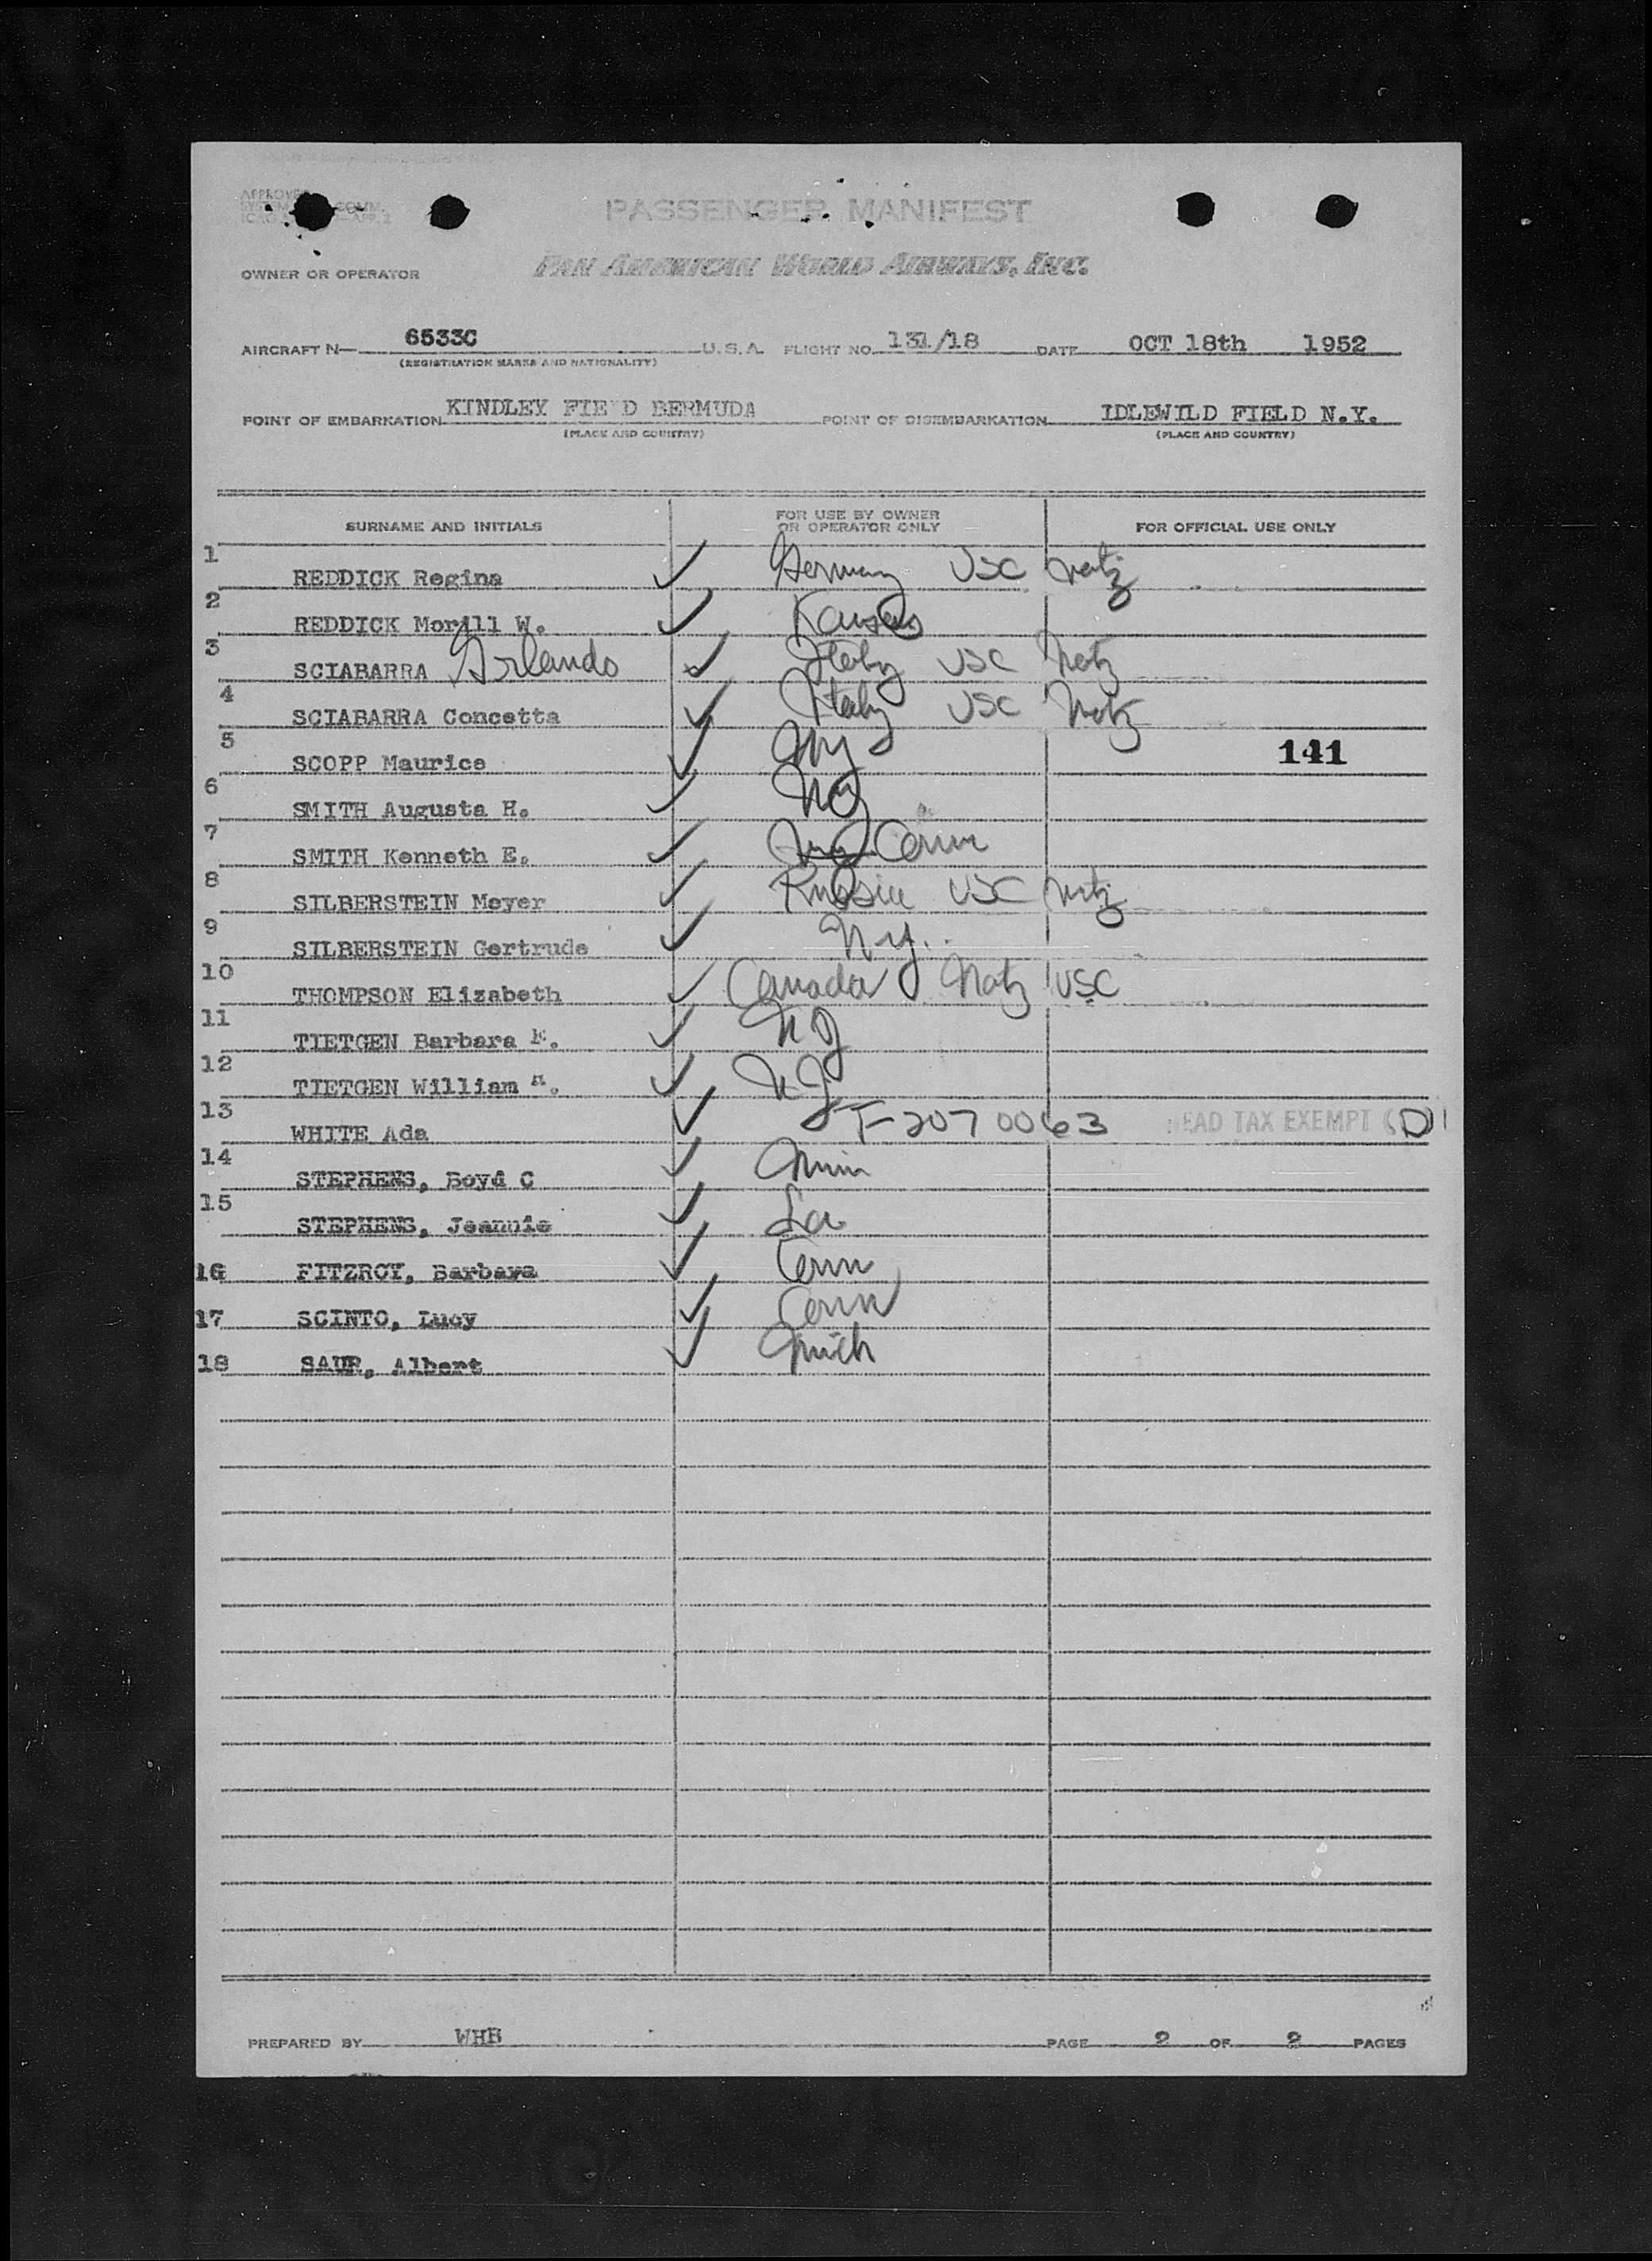 PASSENGER MANIFEST
OWNER OR OPERATOR PAN AMERICAN WORLD AIRWAYS, INC.
AIRCRAFT N— 6533C U.S.A. FLIGHT NO. 131/18 DATE OCT 18th 1952
(REGISTRATION MARKS AND NATIONALITY)
POINT OF EMBARKATION KINDLEY FIE D BERMUDA POINT OF DISEMBARKATION IDLEWILD FIELD N.Y.
(PLACE AND COUNTRY) (PLACE AND COUNTRY)
SURNAME AND INITIALS FOR USE BY OWNER OR OPERATOR ONLY FOR OFFICIAL USE ONLY
1 REDDICK Regina ✓ Germany USC Natz
2 REDDICK Morill W. ✓ Kansas
3 SCIABARRA Orlando ✓ Italy USC Natz
4 SCIABARRA Concetta ✓ Italy USC Natz
5 SCOPP Maurice ✓ NY 141
6 SMITH Augusta H. ✓ NY
7 SMITH Kenneth E. ✓ Conn
8 SILBERSTEIN Meyer ✓ Russia USC Natz
9 SILBERSTEIN Gertrude ✓ N.Y.
10 THOMPSON Elizabeth ✓ Canada Natz USC
11 TIETGEN Barbara ✓ NJ
12 TIETGEN William ✓ NJ
13 WHITE Ada ✓ T-2070063 HEAD TAX EXEMPT (D)
14 STEPHENS, Boyd C ✓ Minn
15 STEPHENS, Jeannie ✓ La
16 FITZROY, Barbara ✓ Conn
17 SCINTO, Lucy ✓ Conn
18 SAUR, Albert ✓ Mich
PREPARED BY WHB PAGE 2 OF 2 PAGES